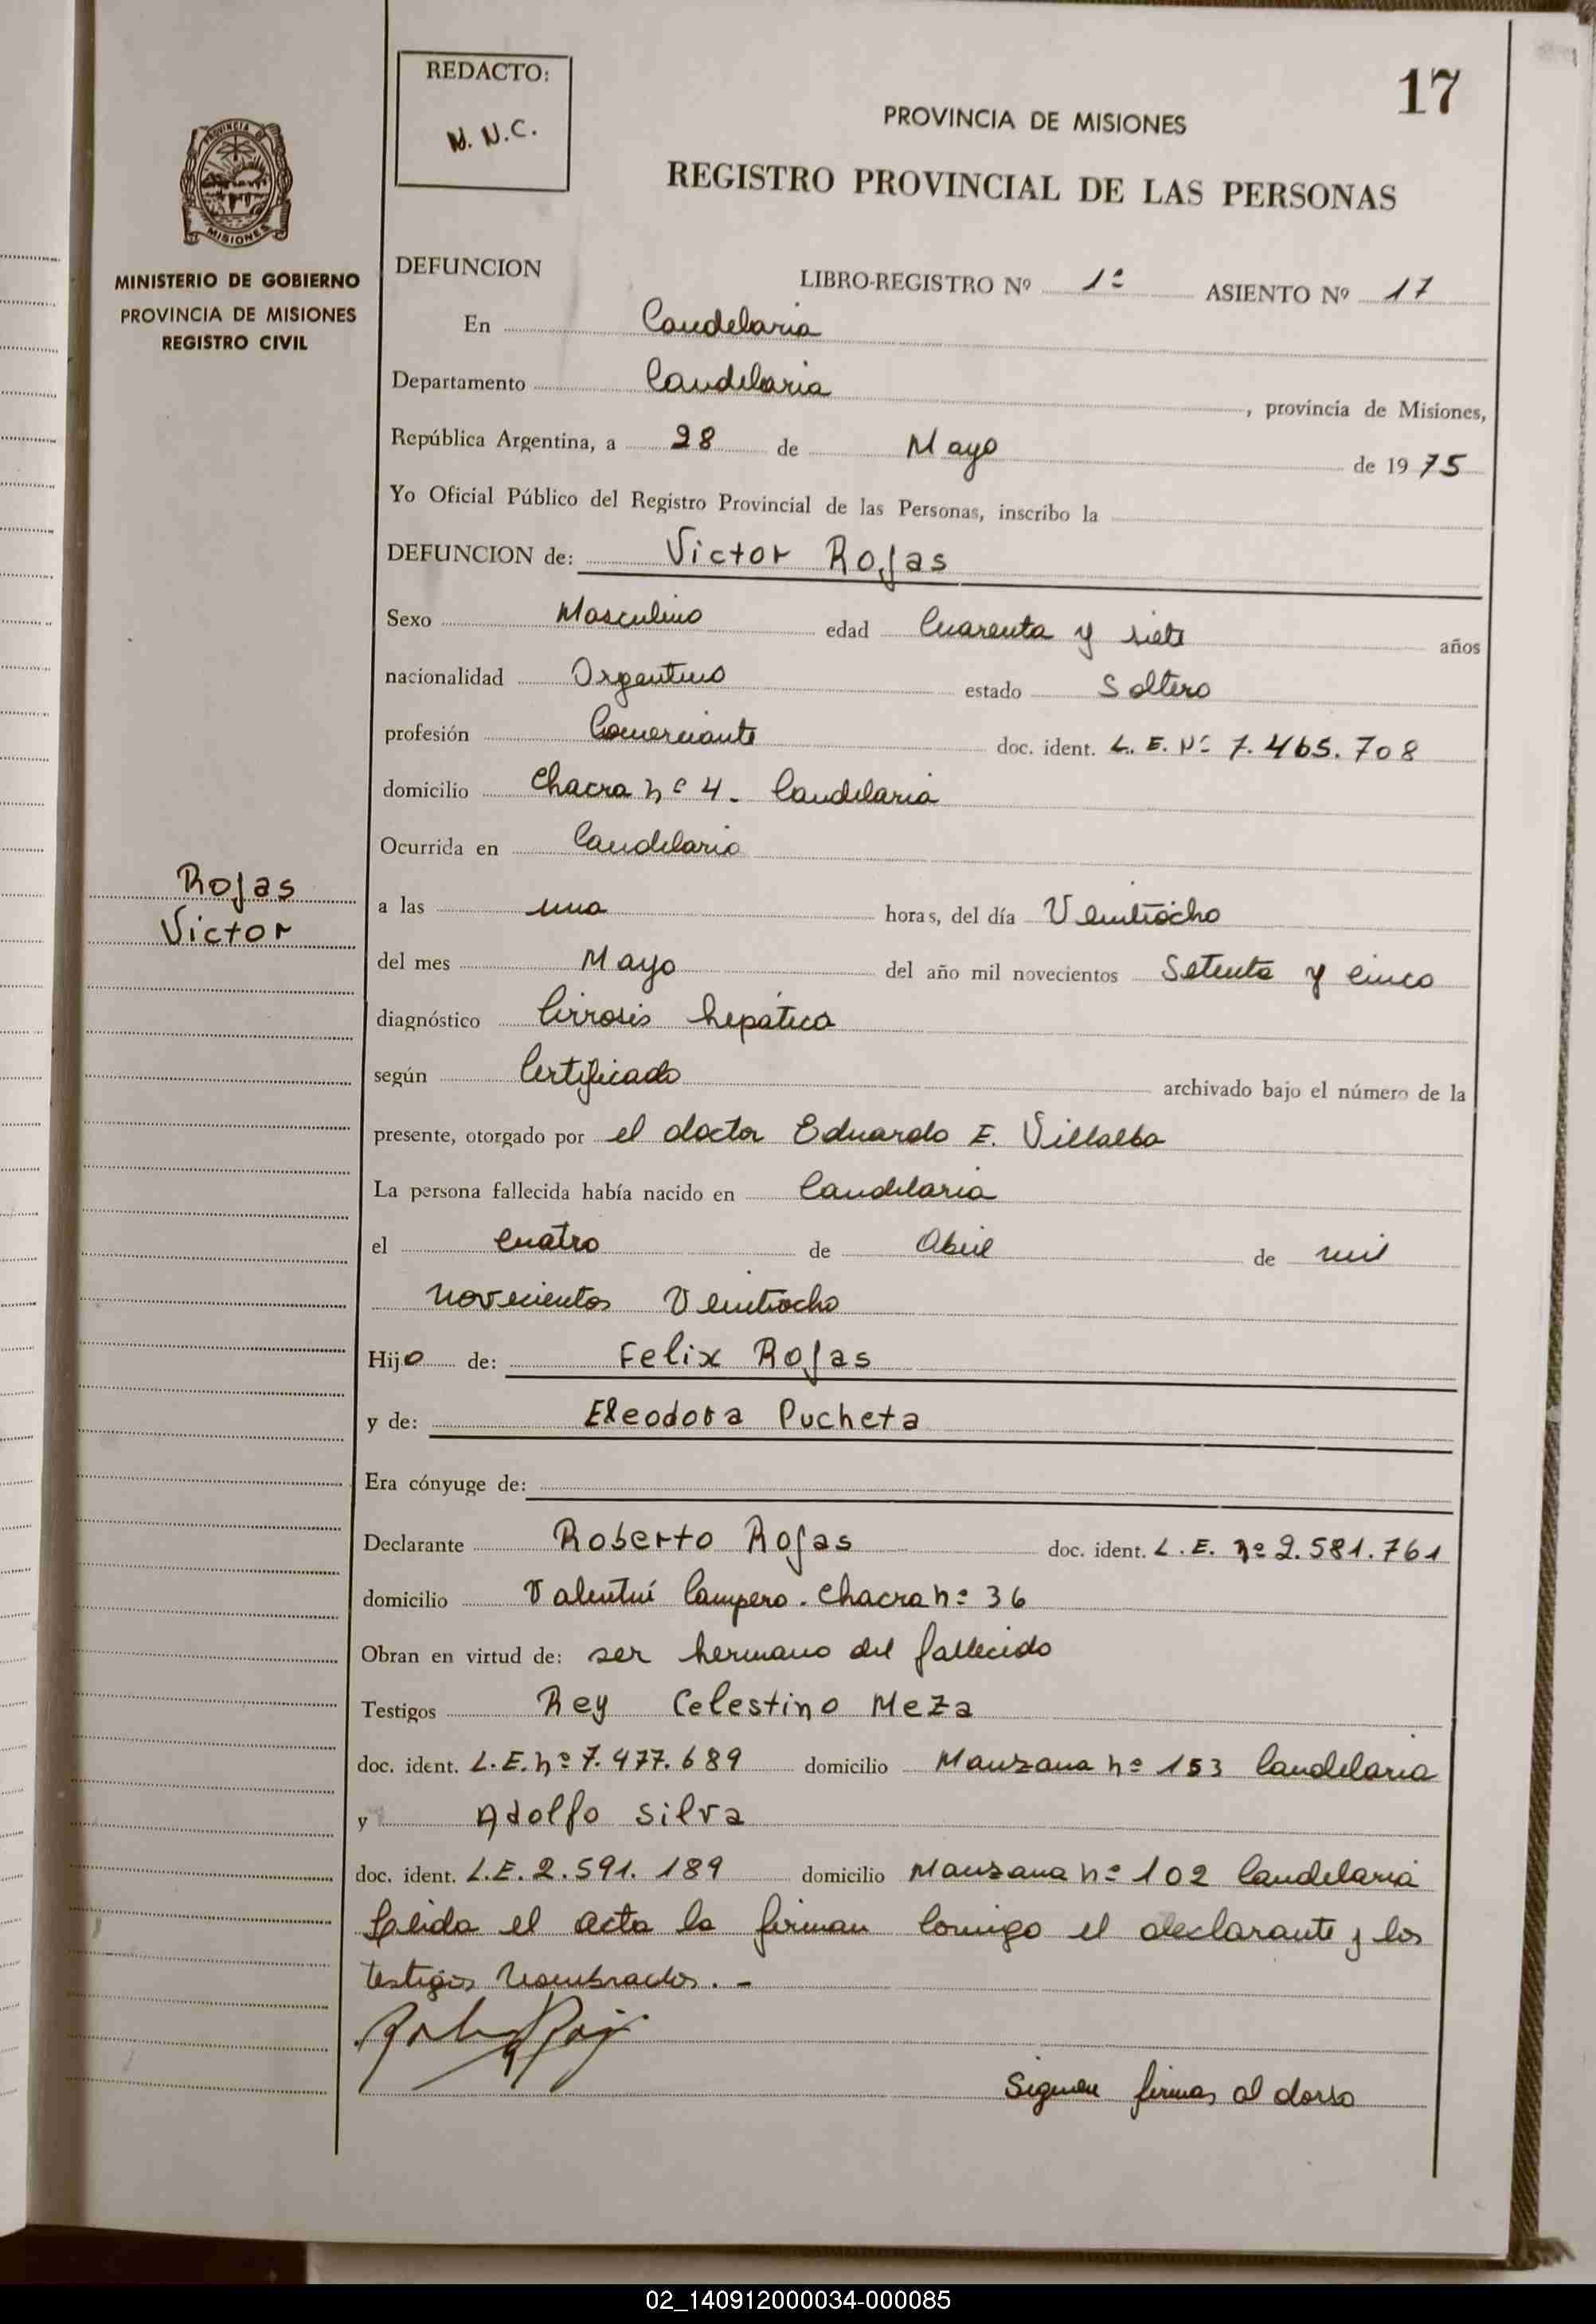 REDACTO:
N. N.C.
17
PROVINCIA DE MISIONES
REGISTRO PROVINCIAL DE LAS PERSONAS
PROVINCIA DE
MISIONES
MINISTERIO DE GOBIERNO
PROVINCIA DE MISIONES
REGISTRO CIVIL
DEFUNCION LIBRO-REGISTRO Nº 1º ASIENTO Nº 17
En Candelaria
Departamento Candelaria, provincia de Misiones,
República Argentina, a 28 de Mayo de 1975
Yo Oficial Público del Registro Provincial de las Personas, inscribo la
DEFUNCION de: Victor Rojas
Sexo Masculino edad Cuarenta y siete años
nacionalidad Argentino estado Soltero
profesión Comerciante doc. ident. L. E. Nº 7.465.708
domicilio Chacra nº 4. Candelaria
Ocurrida en Candelaria
Rojas
Victor
a las una horas, del día Veintiocho
del mes Mayo del año mil novecientos Setenta y cinco
diagnóstico Cirrosis hepática
según Certificado archivado bajo el número de la
presente, otorgado por el doctor Eduardo E. Villalba
La persona fallecida había nacido en Candelaria
el cuatro de Abril de mil
novecientos Veintiocho
Hijo de: Felix Rojas
y de: Eleodora Pucheta
Era cónyuge de:
Declarante Roberto Rojas doc. ident. L. E. nº 2.581.761
domicilio Valentín Campero. Chacra nº 36
Obran en virtud de: ser hermano del fallecido
Testigos Rey Celestino Meza
doc. ident. L.E. nº 7.477.689 domicilio Manzana nº 153 Candelaria
y Adolfo Silva
doc. ident. L.E. 2.591.189 domicilio Manzana nº 102 Candelaria
Leída el acta la firman Conmigo el declarante y los
testigos nombrados. -
Siguen firmas al dorso
02_140912000034-000085